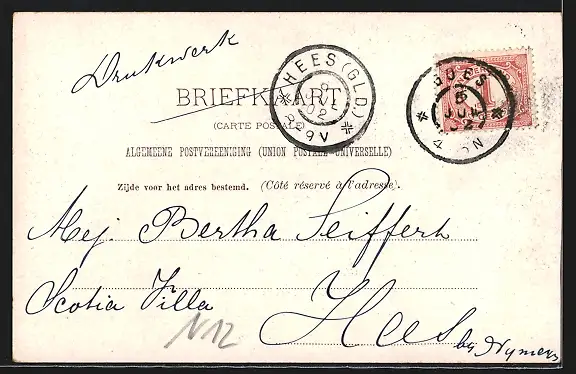 Drukwerk
HEES (GLD.)
8
02
8-9V
GOES
8
JUN
02
4 N
BRIEFKAART
(CARTE POSTALE)
ALGEMEENE POSTVEREENIGING (UNION POSTALE UNIVERSELLE)
Zijde voor het adres bestemd. (Côté réservé à l'adresse).
Mej. Bertha Seiffert
Scotia Villa
Hees
bij Nymegen
N12